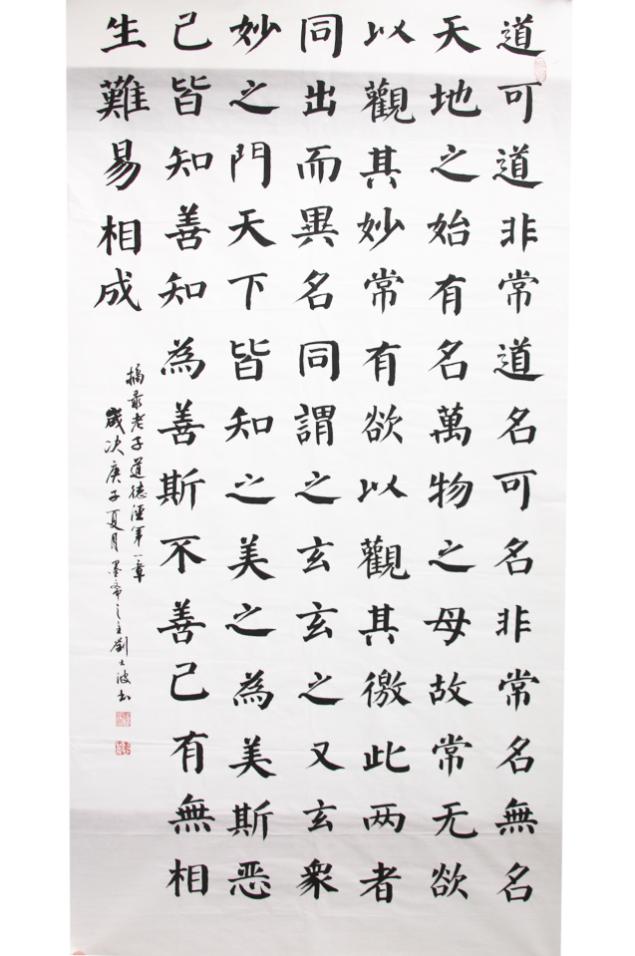 道可道非常道名可名非常名無名
天地之始有名萬物之母故常无欲
以觀其妙常有欲以觀其徼此两者
同出而異名同謂之玄玄之又玄衆
妙之門天下皆知之美之為美斯恶
己皆知善知為善斯不善己有無相
生難易相成
摘录老子道德經第一章
歲次庚子夏月墨之主劉波书